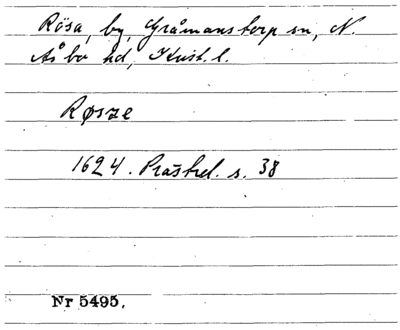 Rösa, by, Gråmanstorp sn, N.
Åsbo hd, Krist. l.
Røsze
1624. Prästrel. s. 38
Nr 5495.